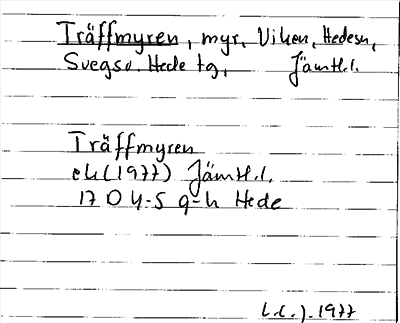 Träffmyren, myr, Viken, Hedesn,
Svegs o. Hede tg, Jämtl.l.
Träffmyren
ek (1977) Jämtl.l.
17 D 4-5 g-h Hede
1977